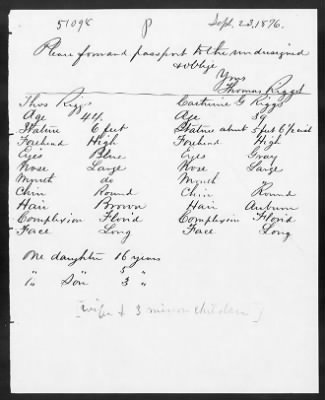 51098 Sept. 23, 1876.
Please forward passport to the undersigned
& oblige
Yours
Thomas Riggs
Thos Riggs Catherine G Riggs
Age 44. Age 39
Stature 6 feet Stature about 5 feet 6 1/2 inch
Forehead High Forehead High
Eyes Blue Eyes Gray
Nose Large Nose Large
Mouth do Mouth
Chin Round Chin Round
Hair Brown Hair Auburn
Complexion Florid Complexion Florid
Face Long Face Long
One daughter 16 years
" " 5 "
" Son 3 "
[wife & 3 minor children]